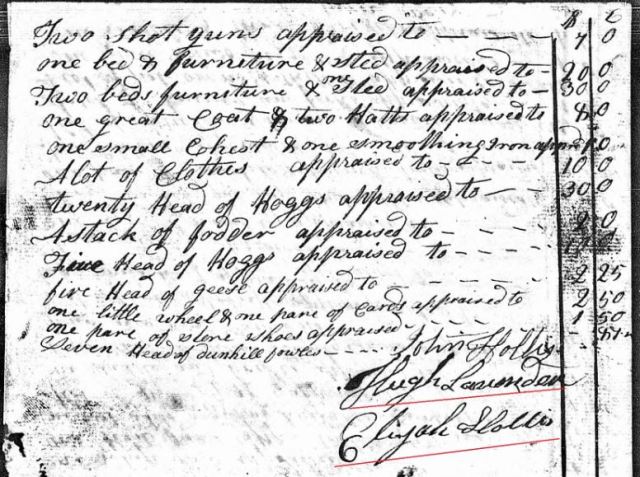 D C
Two Shot guns appraised to — — — 7 0
one bed & furniture & sted appraised to — 20 0
Two beds furniture & one sted appraised to — 30 0
one great Coat & two Hatts appraised to 8 0
one small Chest & one smoothing Iron 0
A lot of Clothes appraised to — — — 10 0
twenty Head of Hoggs appraised to — — 30 0
A stack of fodder appraised to — — — 0
Five Head of Hoggs appraised to — — —
five Head of geese appraised to — — — 2 25
one little wheel & one pare of Cards appraised to 2 50
one pare of shoes appraised — — — 1 50
Seven Head of dunhill fowles — — —
John Hollis
Hugh Lavender
Elijah Hollis